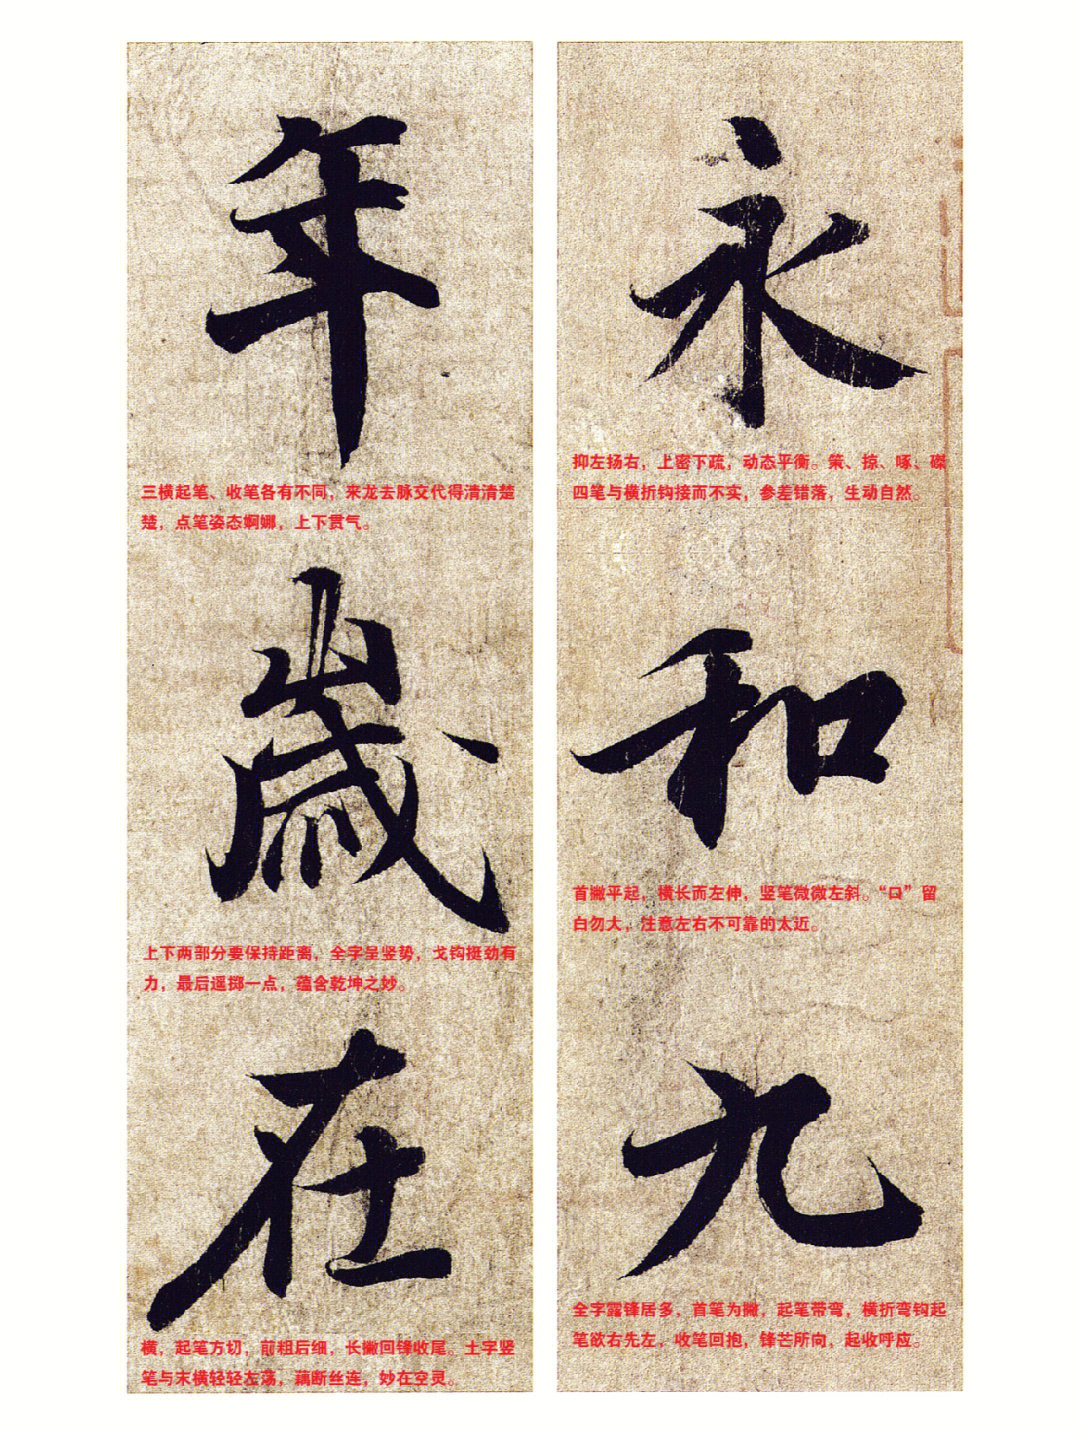 永
抑左扬右，上密下疏，动态平衡。策、掠、啄、磔
四笔与横折钩接而不实，参差错落，生动自然。
和
首撇平起，横长而左伸，竖笔微微左斜。“口”留
白勿大，注意左右不可靠的太近。
九
全字露锋居多，首笔为撇，起笔带弯，横折弯钩起
笔欲右先左，收笔回抱，锋芒所向，起收呼应。
年
三横起笔、收笔各有不同，来龙去脉交代得清清楚
楚，点笔姿态婀娜，上下贯气。
歲
上下两部分要保持距离，全字呈竖势，戈钩挺劲有
力，最后遥掷一点，蕴含乾坤之妙。
在
横，起笔方切，前粗后细，长撇回锋收尾。土字竖
笔与末横轻轻左荡，藕断丝连，妙在空灵。